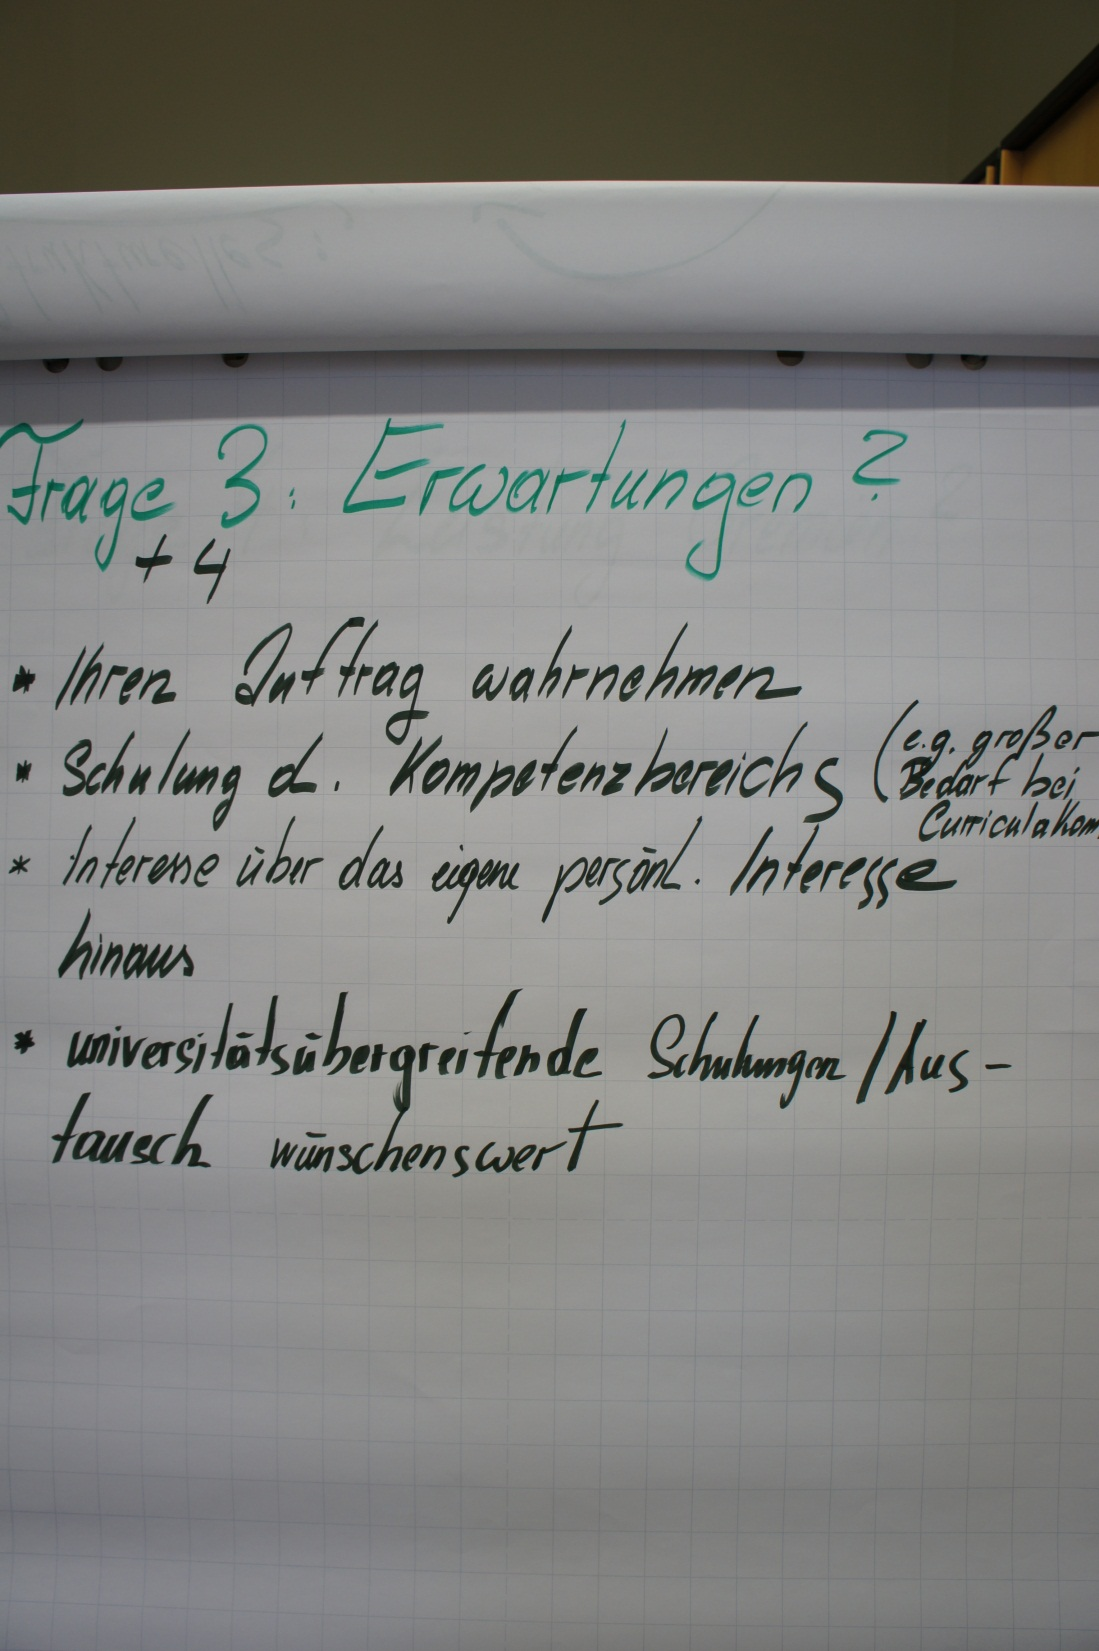 Frage 3: Erwartungen?
+ 4
* Ihren Auftrag wahrnehmen
* Schulung d. Kompetenzbereichs (e.g. großer
Bedarf bei
CurriculaKom
* Interesse über das eigene persönl. Interesse
hinaus
* universitätsübergreifende Schulungen / Aus-
tausch wünschenswert